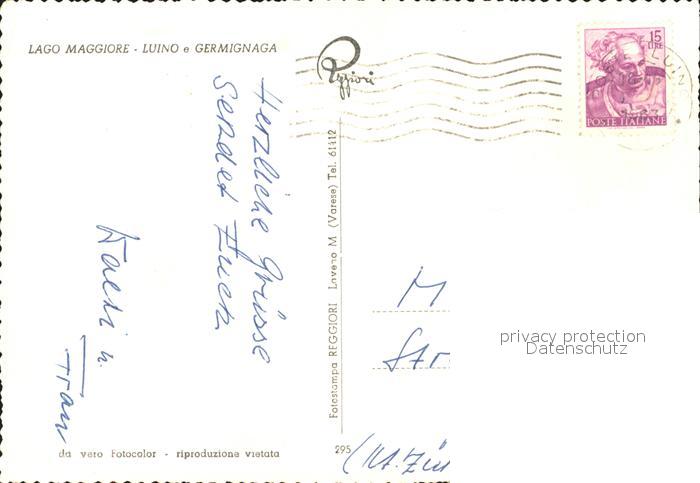 LAGO MAGGIORE - LUINO e GERMIGNAGA
Reggiori
15
LIRE
LUIN
POSTE ITALIANE
Herzliche Grüsse
sendet Euch
u.
Frau
Fotostampa REGGIORI Laveno M. (Varese) Tel. 61412
M
Str
(Kt. Zür
privacy protection
Datenschutz
da vero Fotocolor - riproduzione vietata
295